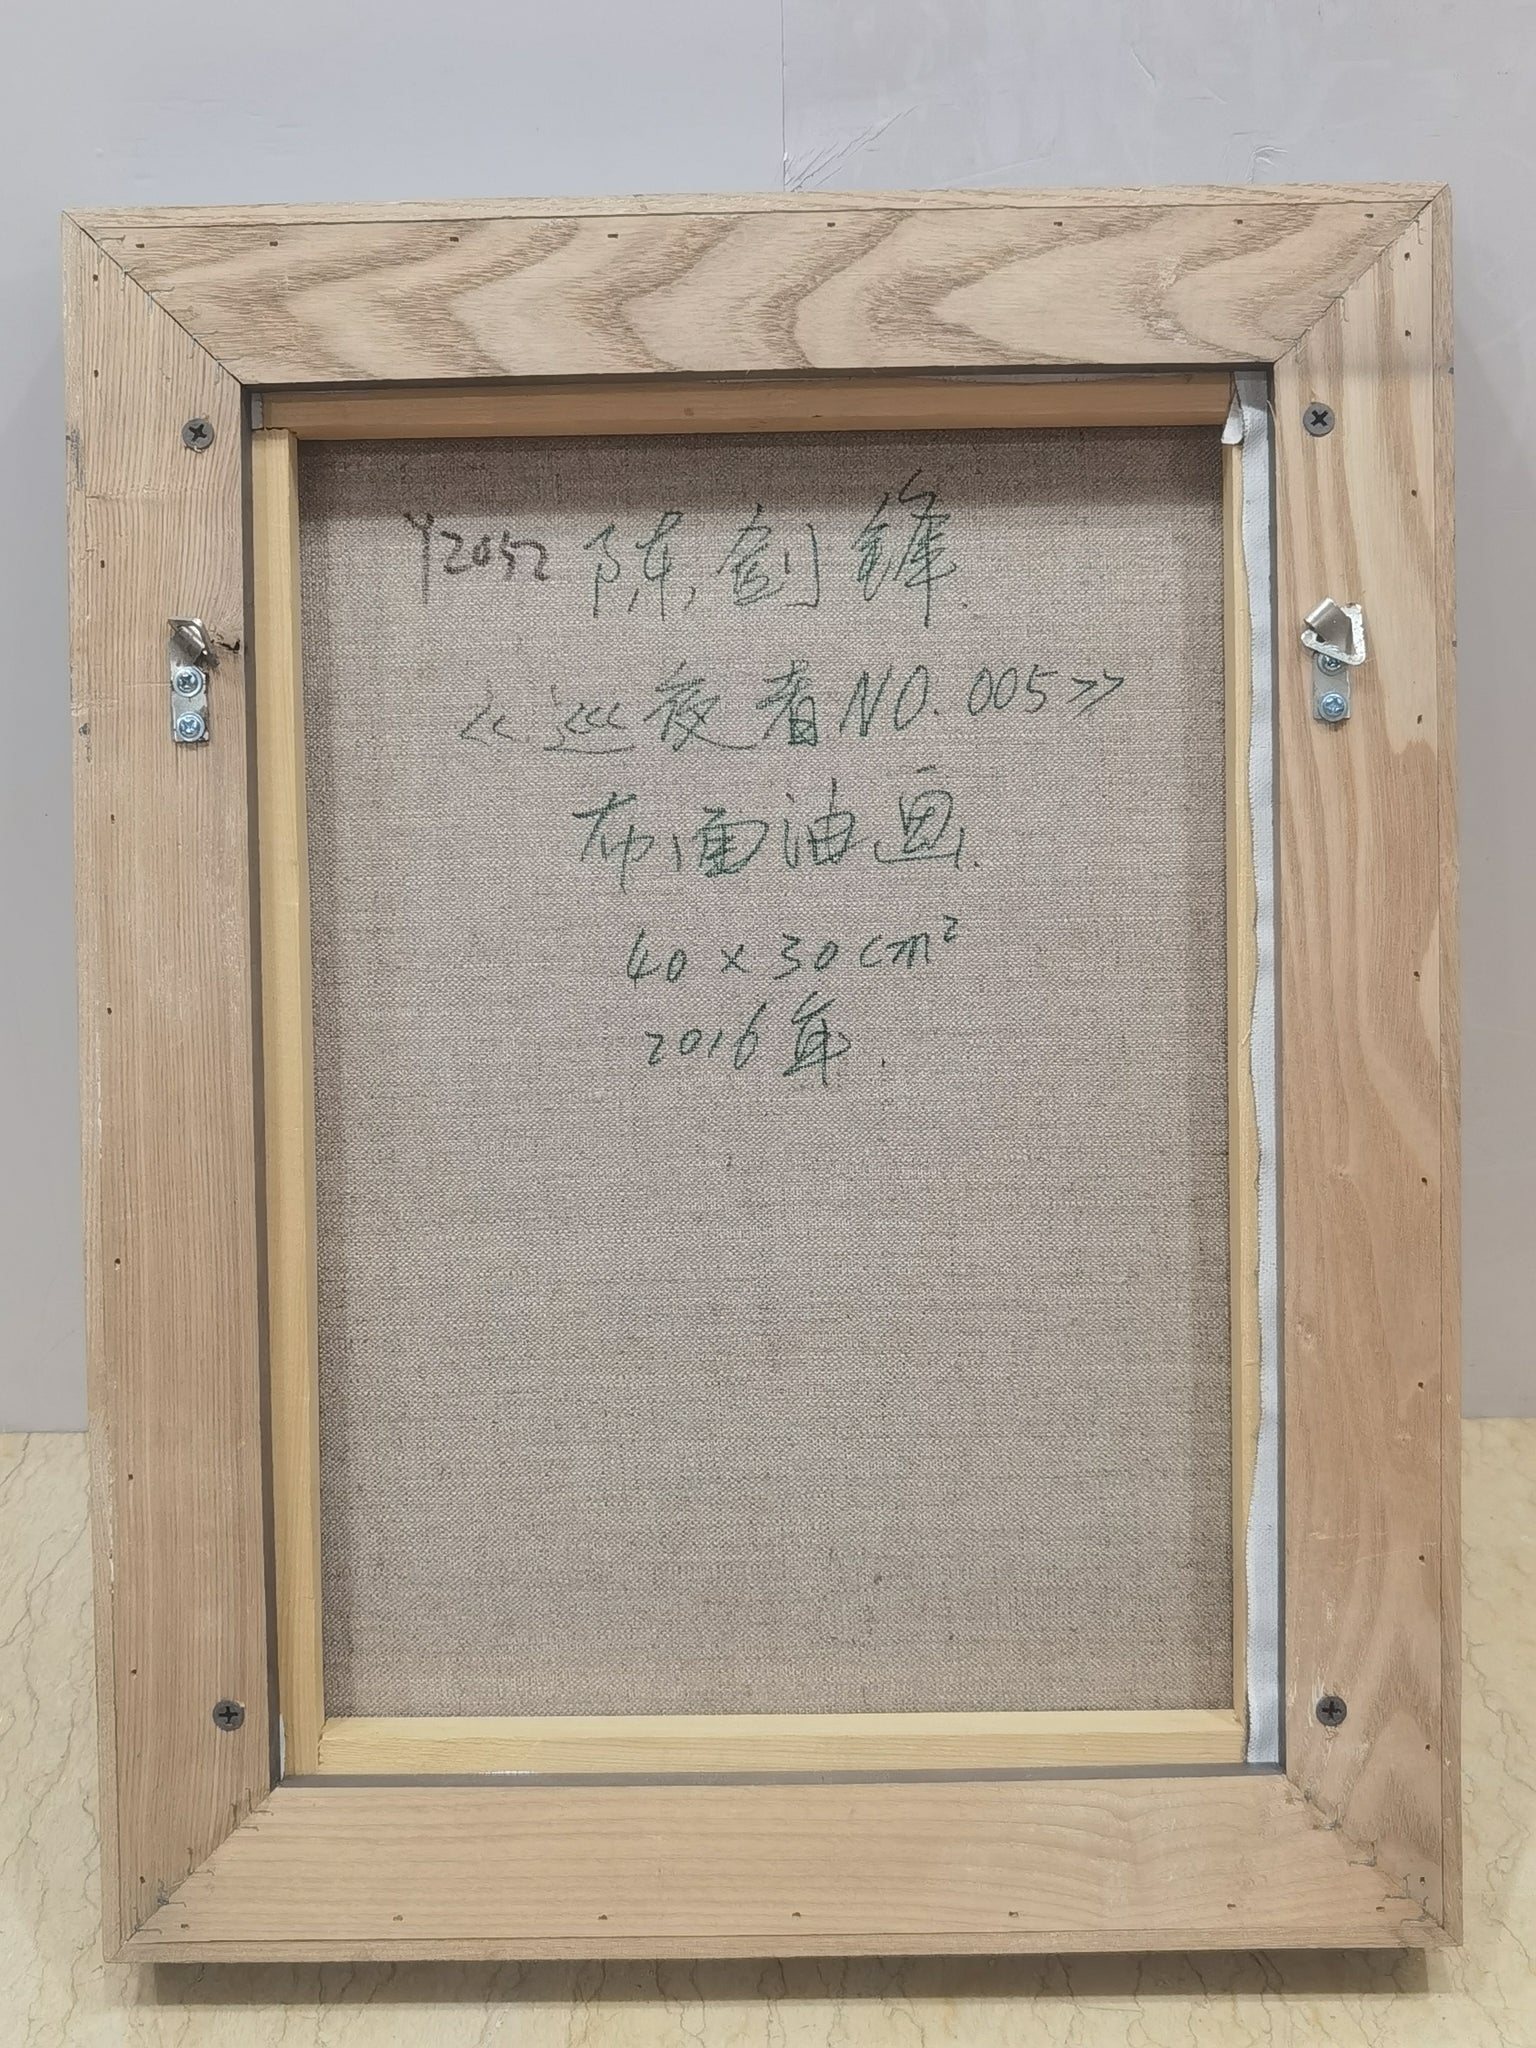 Y2052 陈剑锋
《巡夜者NO.005》
布面油画
40×30cm²
2016年